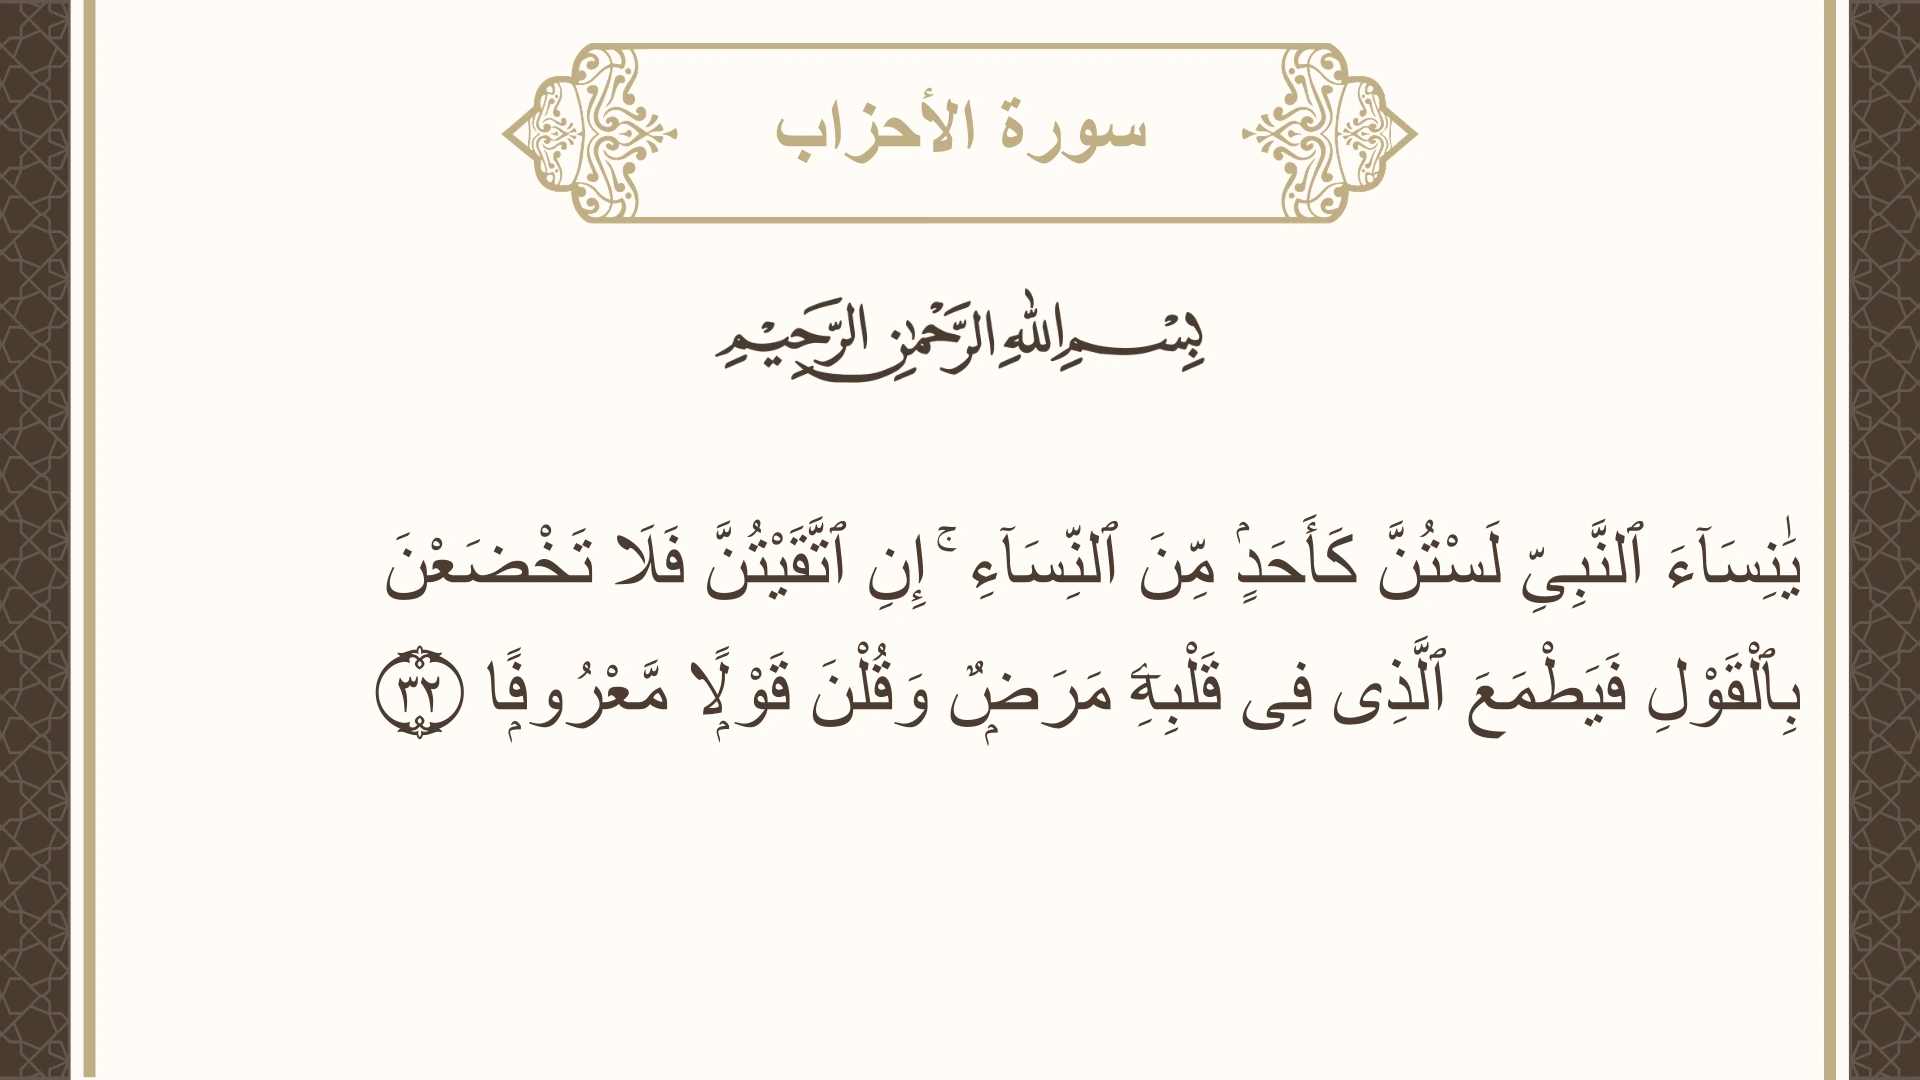 سورة الأحزاب
بِسْمِ اللهِ الرَّحْمٰنِ الرَّحِيْمِ
يَٰنِسَآءَ ٱلنَّبِىِّ لَسْتُنَّ كَأَحَدٍۢ مِّنَ ٱلنِّسَآءِ ۚ إِنِ ٱتَّقَيْتُنَّ فَلَا تَخْضَعْنَ
بِٱلْقَوْلِ فَيَطْمَعَ ٱلَّذِى فِى قَلْبِهِۦ مَرَضٌۭ وَقُلْنَ قَوْلًۭا مَّعْرُوفًۭا ٣٢